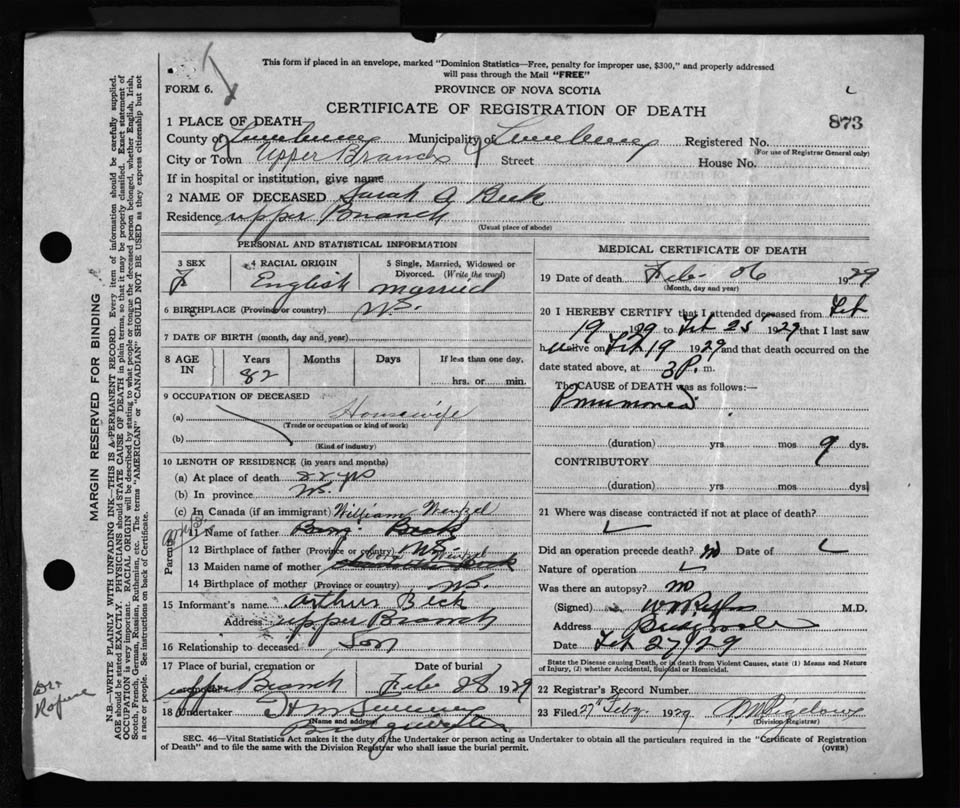 This form if placed in an envelope, marked "Dominion Statistics—Free, penalty for improper use, $300," and properly addressed
will pass through the Mail "FREE"
FORM 6.
PROVINCE OF NOVA SCOTIA
CERTIFICATE OF REGISTRATION OF DEATH
873
1 PLACE OF DEATH
County of Lunenburg Municipality of Lunenburg Registered No.
(For use of Registrar General only)
City or Town Upper Branch Street House No.
If in hospital or institution, give name
2 NAME OF DECEASED Sarah A Beck
Residence upper Branch
(Usual place of abode)
PERSONAL AND STATISTICAL INFORMATION
3 SEX F
4 RACIAL ORIGIN English
5 Single, Married, Widowed or Divorced. (Write the word) married
6 BIRTHPLACE (Province or country) NS.
7 DATE OF BIRTH (month, day and year)
8 AGE IN Years 82 Months Days If less than one day, hrs. or min.
9 OCCUPATION OF DECEASED
(a) Housewife
(Trade or occupation or kind of work)
(b)
(Kind of industry)
10 LENGTH OF RESIDENCE (in years and months)
(a) At place of death 82 yrs
(b) In province NS.
(c) In Canada (if an immigrant) William Wentzel
Parents
11 Name of father Beck
12 Birthplace of father (Province or country) NS
13 Maiden name of mother
14 Birthplace of mother (Province or country) NS.
15 Informant's name Arthur Beck
Address upper Branch
16 Relationship to deceased Son
17 Place of burial, cremation or
upper Branch
Date of burial
Feb 28 1929
18 Undertaker
(Name and address)
Bridgewater
MEDICAL CERTIFICATE OF DEATH
19 Date of death Feb 26 1929
(Month, day and year)
20 I HEREBY CERTIFY that I attended deceased from Feb
19 1929 to Feb 25 1929 that I last saw
alive on Feb 19 1929 and that death occurred on the
date stated above, at 3 P. m.
The CAUSE OF DEATH was as follows:—
Pneumonia
(duration) yrs mos 9 dys.
CONTRIBUTORY
(duration) yrs mos dys
21 Where was disease contracted if not at place of death?
Did an operation precede death? No Date of
Nature of operation
Was there an autopsy? No
(Signed) M.D.
Address Bridgewater
Date Feb 27/29
State the Disease causing Death, or in death from Violent Causes, state (1) Means and Nature
of Injury, (2) whether Accidental, Suicidal or Homicidal.
22 Registrar's Record Number
23 Filed 27th Feby. 1929 Bigelow
(Division Registrar)
SEC. 46—Vital Statistics Act makes it the duty of the Undertaker or person acting as Undertaker to obtain all the particulars required in the "Certificate of Registration
of Death" and to file the same with the Division Registrar who shall issue the burial permit.
(OVER)
MARGIN RESERVED FOR BINDING
N.B.—WRITE PLAINLY WITH UNFADING INK—THIS IS A PERMANENT RECORD. Every item of information should be carefully supplied.
AGE should be stated EXACTLY. PHYSICIANS should STATE CAUSE OF DEATH in plain terms, so that it may be properly classified. Exact statement of
OCCUPATION is very important. RACIAL ORIGIN will be described by stating to what people or tongue the deceased person belonged, whether English, Irish,
Scotch, French, German, Russian, Ruthenian, etc. The terms "AMERICAN" or "CANADIAN" SHOULD NOT BE USED as they express citizenship but not
a race or people. See instructions on back of Certificate.